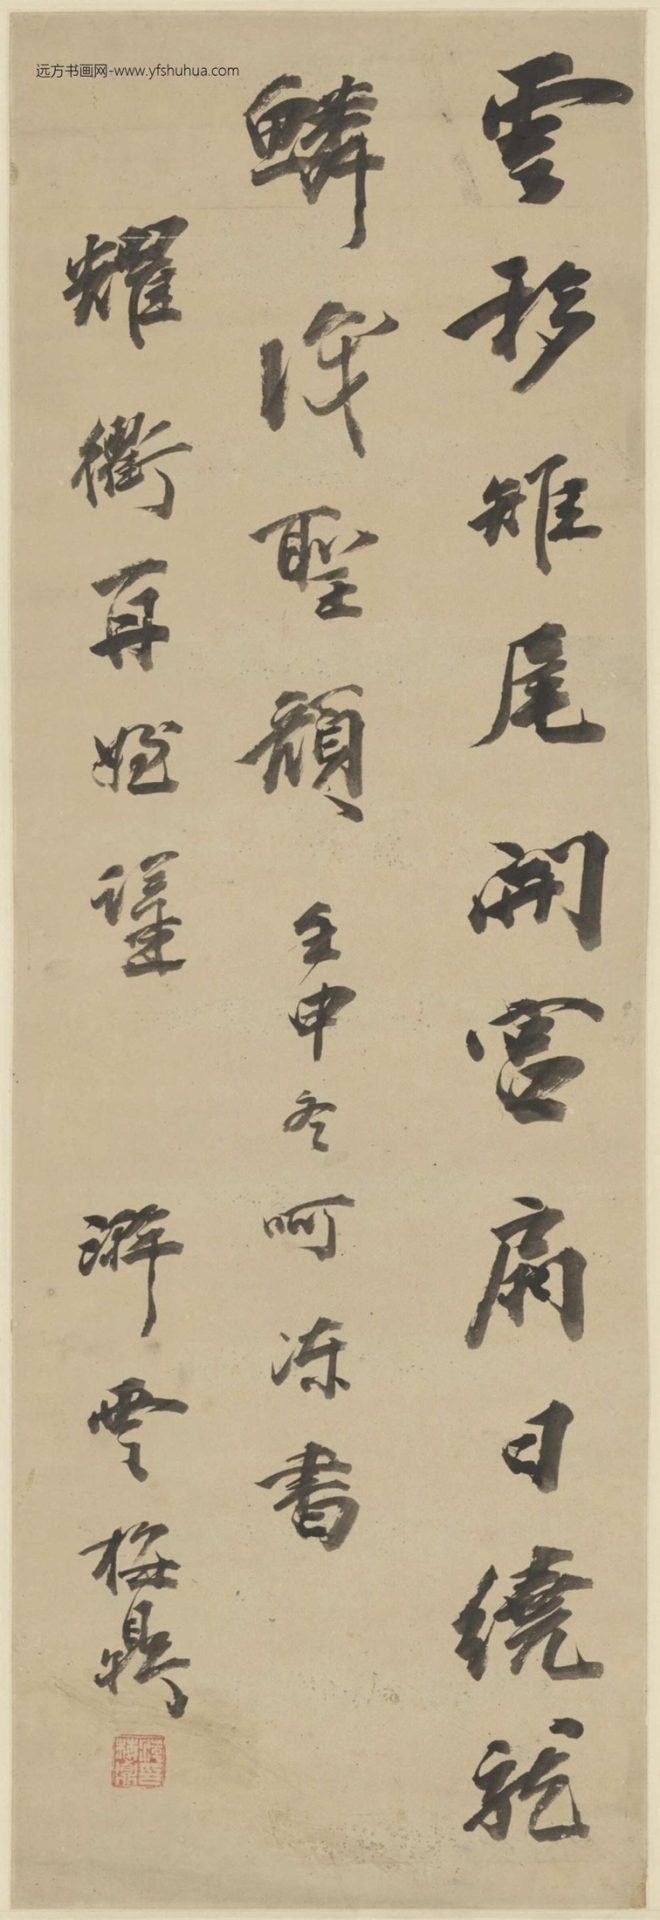 远方书画网-www.yfshuhua.com
雲移雉尾開宮扇日繞龍
鱗識聖顏 壬申冬呵凍書
耀衢再姪 雲梅